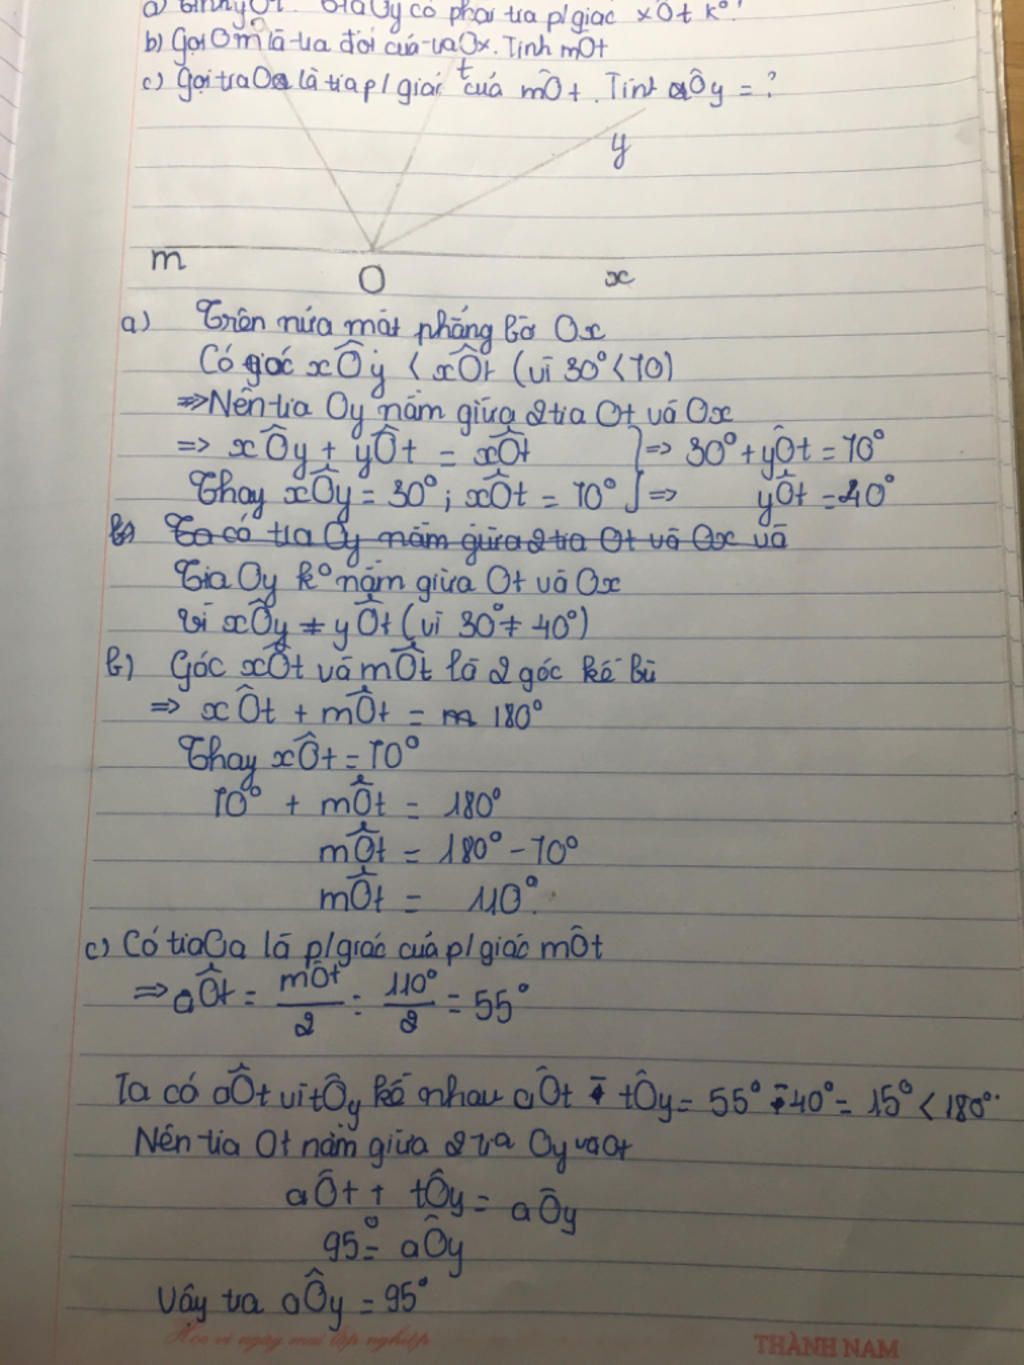 a) Tính yÔt. Tia Oy có phải tia p/giác xÔt k°?
b) Gọi Om là tia đối của tia Ox. Tính mÔt
c) Gọi tia Oa là tia p/giác của mÔt. Tính aÔy = ?
t
y
m
O
x
a) Trên nửa mặt phẳng bờ Ox
Có góc xÔy < xÔt (vì 30° < 70)
=> Nên tia Oy nằm giữa 2 tia Ot và Ox
=> xÔy + yÔt = xÔt => 30° + yÔt = 70°
Thay xÔy = 30° ; xÔt = 70° => yÔt = 40°
b) Ta có tia Oy nằm giữa 2 tia Ot và Ox và
Tia Oy k° nằm giữa Ot và Ox
vì xÔy ≠ yÔt (vì 30° ≠ 40°)
b) Góc xÔt và mÔt là 2 góc kề bù
=> xÔt + mÔt = m 180°
Thay xÔt = 70°
70° + mÔt = 180°
mÔt = 180° - 70°
mÔt = 110°.
c) Có tia Oa là p/giác của p/giác mÔt
=> aÔt = mÔt/2 = 110°/2 = 55°
Ta có aÔt vì tÔy kề nhau aÔt - tÔy = 55° - 40° = 15° < 180°.
Nên tia Ot nằm giữa 2 tia Oy và Ot
aÔt + tÔy = aÔy
95° = aÔy
Vậy ta aÔy = 95°
Học vì ngày mai lập nghiệp
THÀNH NAM